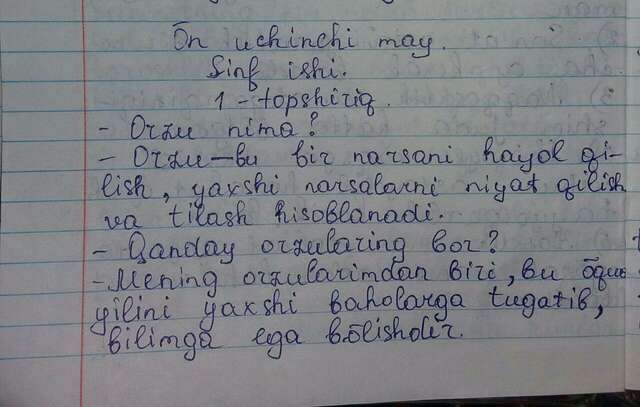 Ōn uchinchi may.
Sinf ishi.
1-topshiriq.
- Orzu nima?
- Orzu—bu bir narsani hayol qi-
lish, yaxshi narsalarni niyat qilish
va tilash hisoblanadi.
- Qanday orzularing bor?
- Mening orzularimdan biri, bu ōquv
yilini yaxshi baholarga tugatib,
bilimga ega bōlishdir.